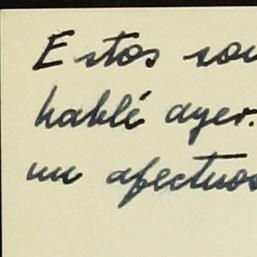 Estos son
hablé ayer.
un afectuos